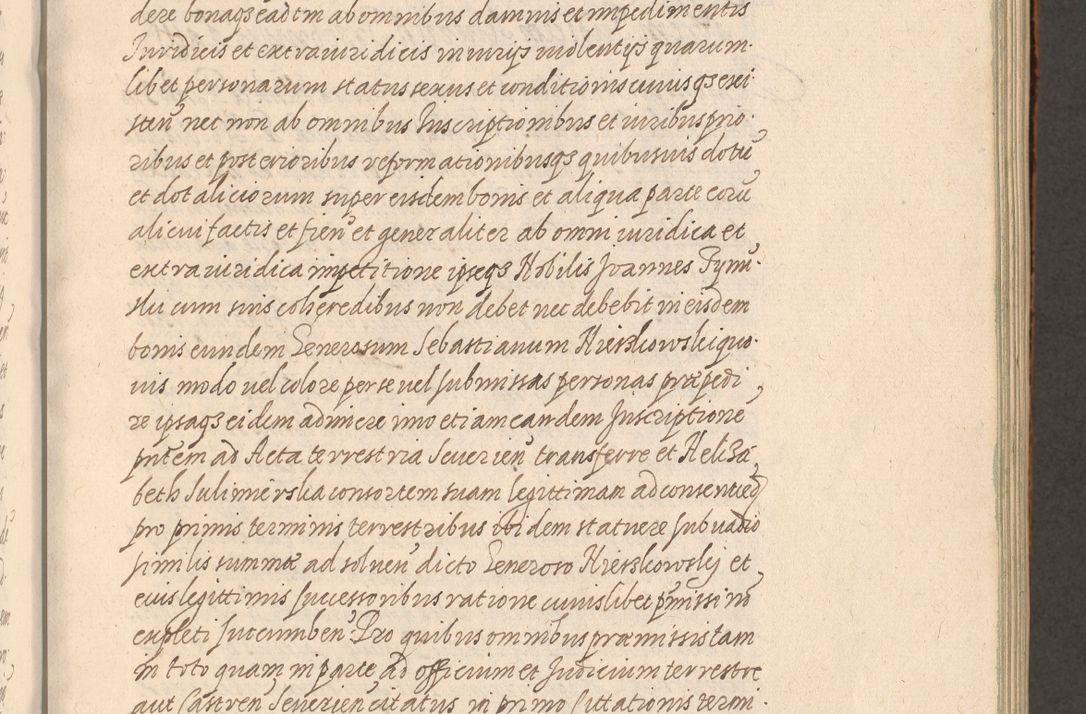 dere bonaqs eadem ab omnibus damnis et impedimentis
Iuridicis et extraiuridicis iniurijs violentijs quarum
libet personarum status sexus et conditionis cuiusqs exi
sten̄ nec non ab omnibus Inscriptionibus et iuribus prio
ribus et posterioribus reformationibusqs quibusuis dotū
et dotaliciorum super eisdem bonis et aliqua parte eorū
alicui factis et fien̄ et generaliter ab omni iuridica et
extraiuridica impetitione ipseqs Nobilis Joannes
cum suis coheredibus non debet nec debebit in eisdem
bonis eundem Generosum Sebastianum Hieskowski quo
uis modo uel colore per se uel submissas personas præpedi
re ipsaqs eidem adimere imo etiam eandem Inscriptionē
pn̄tem ad Acta terrestria Seuerien̄ transferre et Heliza
beth consortem suam legittimam ad consentied̄
pro primis terminis terrestribus ibidem statuere sub uadio
similis summæ ad soluen̄ dicto Generoso Hieskowskij et
eius legittimis successoribus ratione cuiuslibet p̄missi nō
expleti succumben̄ Pro quibus omnibus præmissis tam
in toto quam in parte ad officium et Judicium terrestre
aut Castren̄ Seuerien̄ citatus in primo Cittationis termi